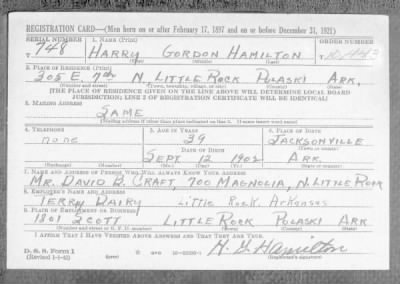 REGISTRATION CARD—(Men born on or after February 17, 1897 and on or before December 31, 1921)
SERIAL NUMBER 1. NAME (Print) ORDER NUMBER
748 HARRY GORDON HAMILTON
(First) (Middle) (Last)
2. PLACE OF RESIDENCE (Print)
305 E. 7th N. LITTLE ROCK PULASKI ARK.
(Number and street) (Town, township, village, or city) (County) (State)
[THE PLACE OF RESIDENCE GIVEN ON THE LINE ABOVE WILL DETERMINE LOCAL BOARD
JURISDICTION; LINE 2 OF REGISTRATION CERTIFICATE WILL BE IDENTICAL]
3. MAILING ADDRESS
SAME
[Mailing address if other than place indicated on line 2. If same insert word same]
4. TELEPHONE 5. AGE IN YEARS 6. PLACE OF BIRTH
none 39 JACKSONVILLE
DATE OF BIRTH (Town or county)
SEPT. 12 1902 ARK.
(Exchange) (Number) (Mo.) (Day) (Yr.) (State or country)
7. NAME AND ADDRESS OF PERSON WHO WILL ALWAYS KNOW YOUR ADDRESS
MR. DAVID B. CRAFT, 700 MAGNOLIA, N. LITTLE ROCK
8. EMPLOYER'S NAME AND ADDRESS
TERRY DAIRY Little Rock, Arkansas
9. PLACE OF EMPLOYMENT OR BUSINESS
1801 SCOTT LITTLE ROCK PULASKI ARK
(Number and street or R. F. D. number) (Town) (County) (State)
I AFFIRM THAT I HAVE VERIFIED ABOVE ANSWERS AND THAT THEY ARE TRUE.
D. S. S. Form 1 H. G. Hamilton
(Revised 1-1-42) (over) (Registrant's signature)